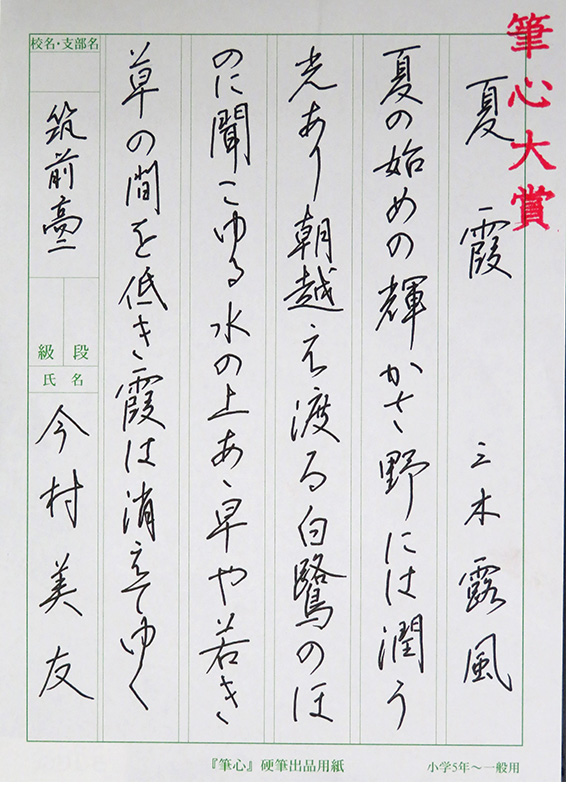 筆心大賞
夏霞 三木露風
夏の始めの輝かさ野には潤う
光あり朝越え渡る白鷺のほ
のに聞こゆる水の上あゝ早や若き
草の間を低き霞は消えてゆく
校名・支部名
筑前臺
級 段
氏名
今村美友
『筆心』硬筆出品用紙
小学5年〜一般用